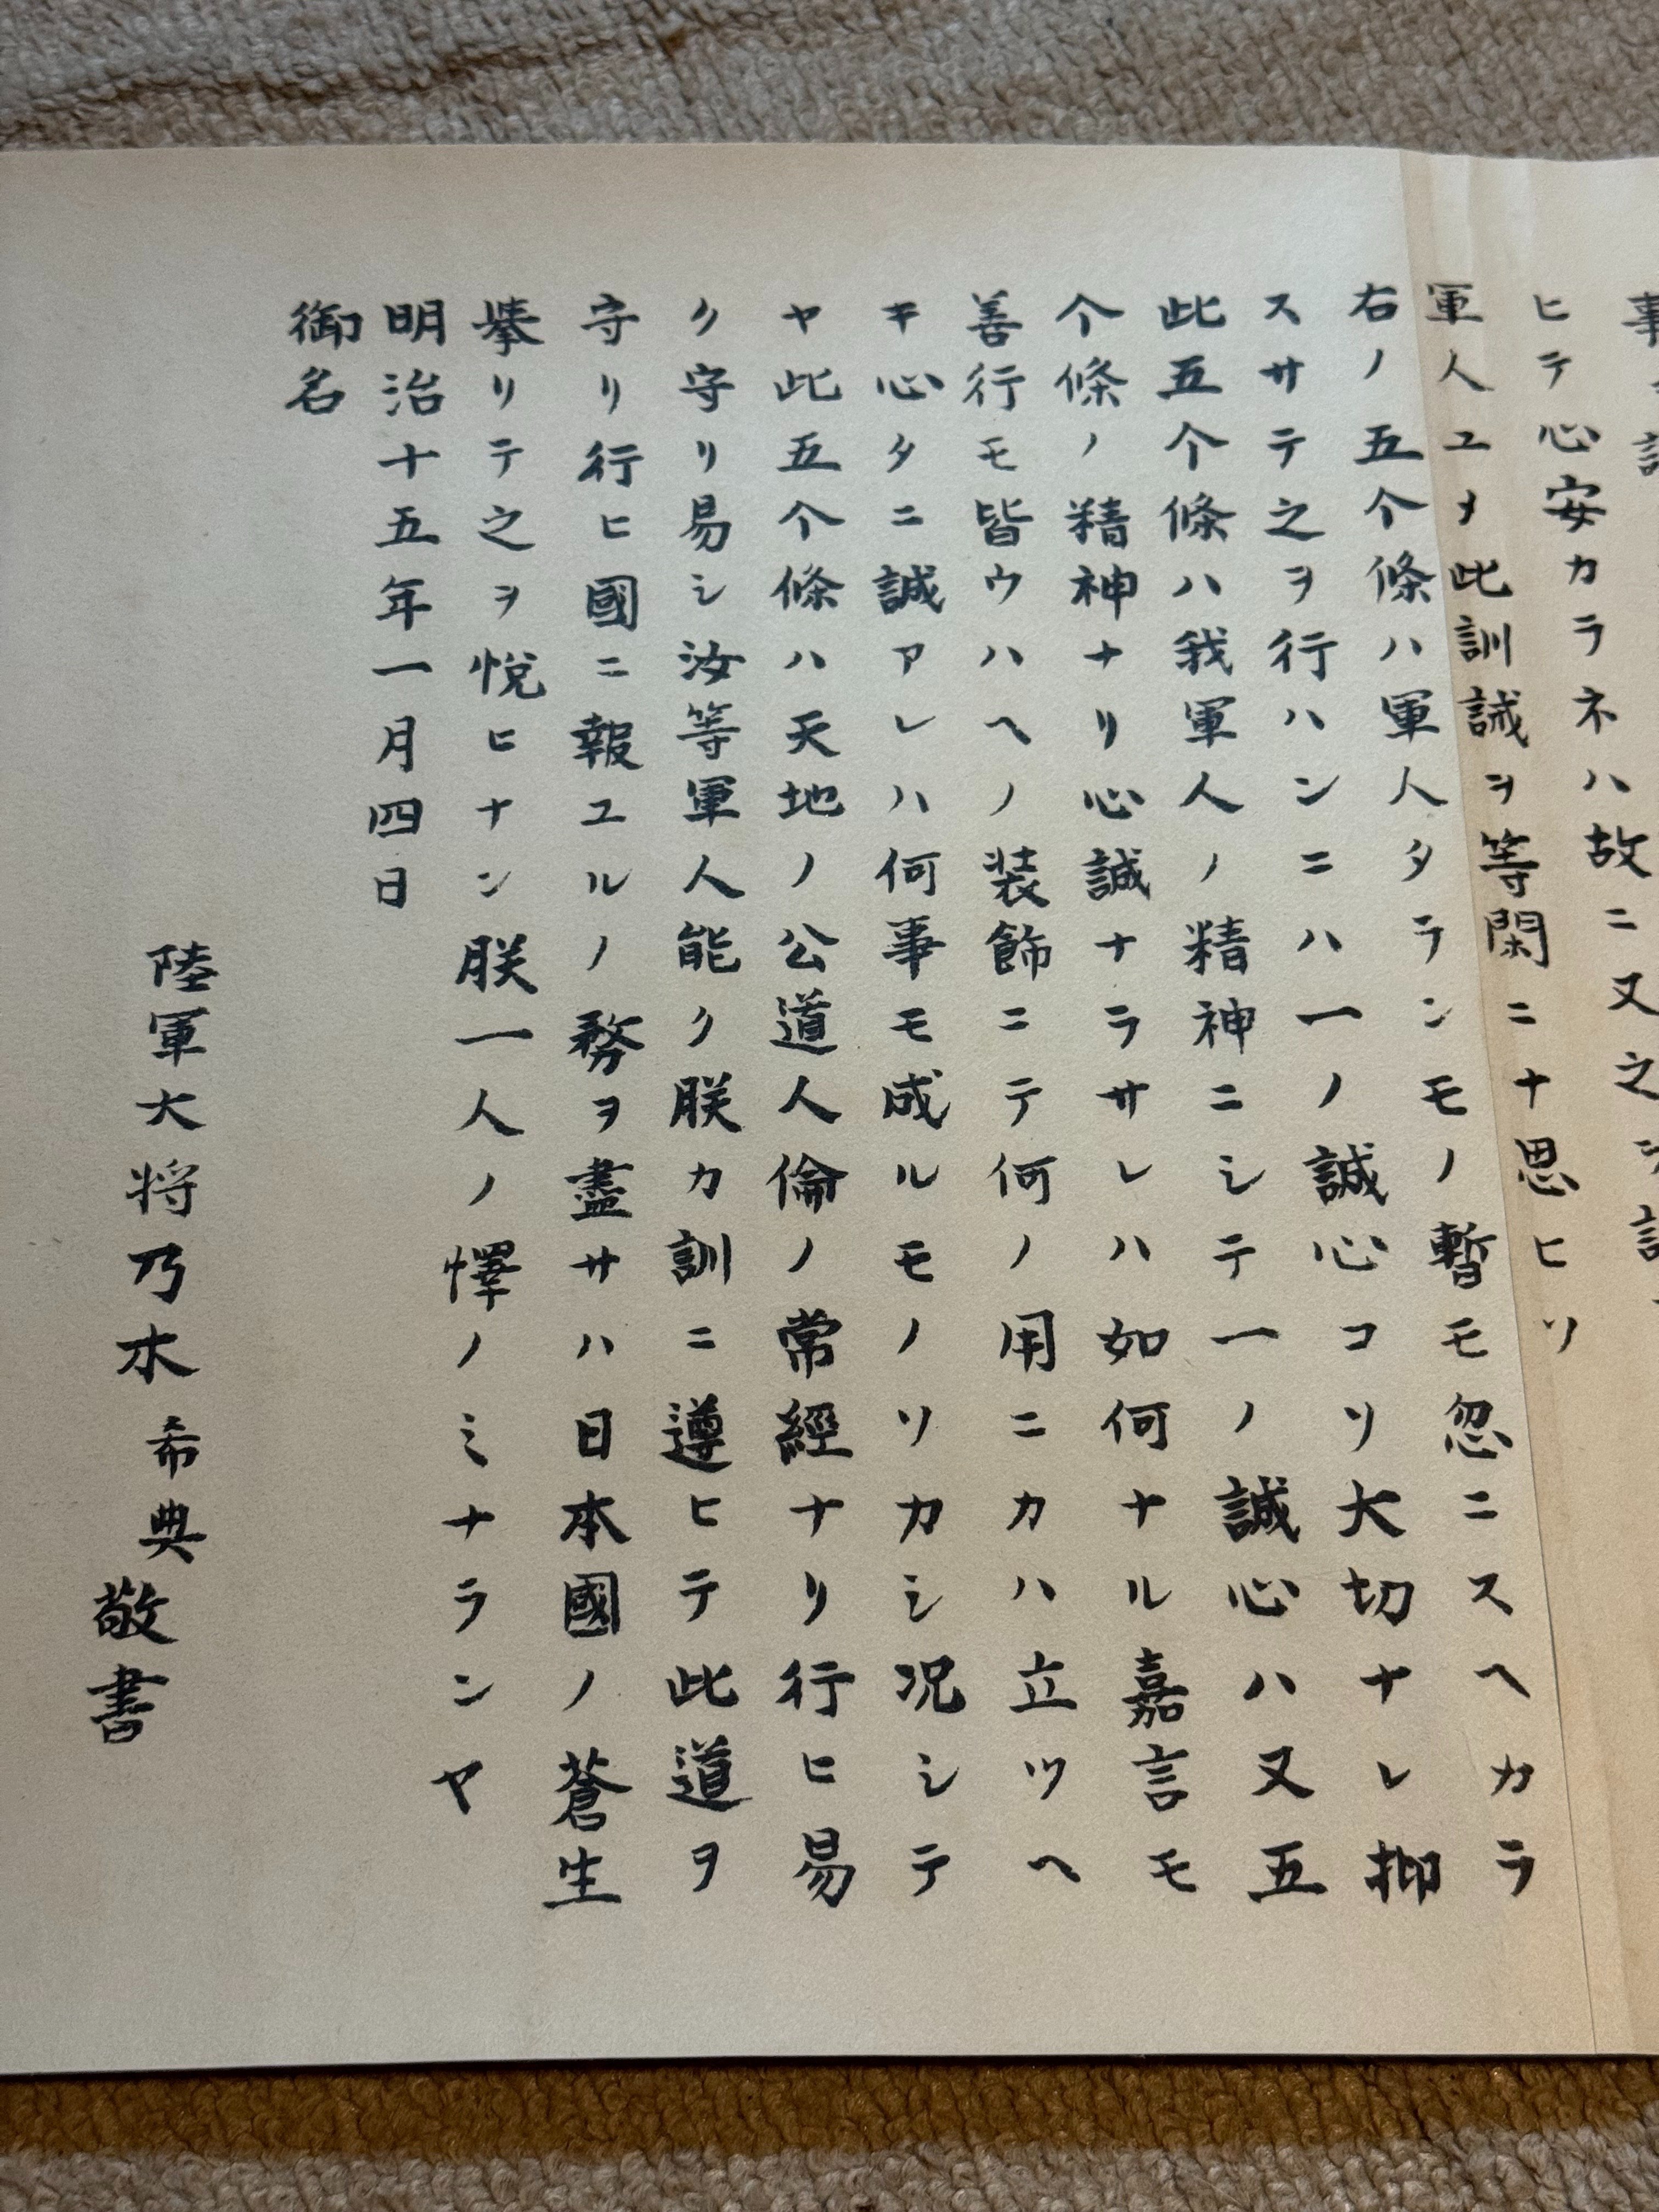 ヒテ心安カラネハ故ニ又之
軍人ユメ此訓誡ヲ等閑ニナ思ヒソ
右ノ五个條ハ軍人タランモノ暫モ忽ニスヘカラ
スサテ之ヲ行ハンニハ一ノ誠心コソ大切ナレ抑
此五个條ハ我軍人ノ精神ニシテ一ノ誠心ハ又五
个條ノ精神ナリ心誠ナラサレハ如何ナル嘉言モ
善行モ皆ウハヘノ装飾ニテ何ノ用ニカハ立ツヘ
キ心タニ誠アレハ何事モ成ルモノソカシ况シテ
ヤ此五个條ハ天地ノ公道人倫ノ常經ナリ行ヒ易
ク守リ易シ汝等軍人能ク朕カ訓ニ遵ヒテ此道ヲ
守リ行ヒ國ニ報ユルノ務ヲ盡サハ日本國ノ蒼生
擧リテ之ヲ悦ヒナン朕一人ノ懌ノミナランヤ
明治十五年一月四日
御名
陸軍大将乃木希典敬書